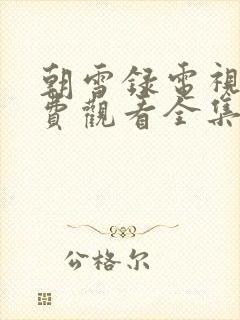 朝雪録電視
費觀看全集
公格尔